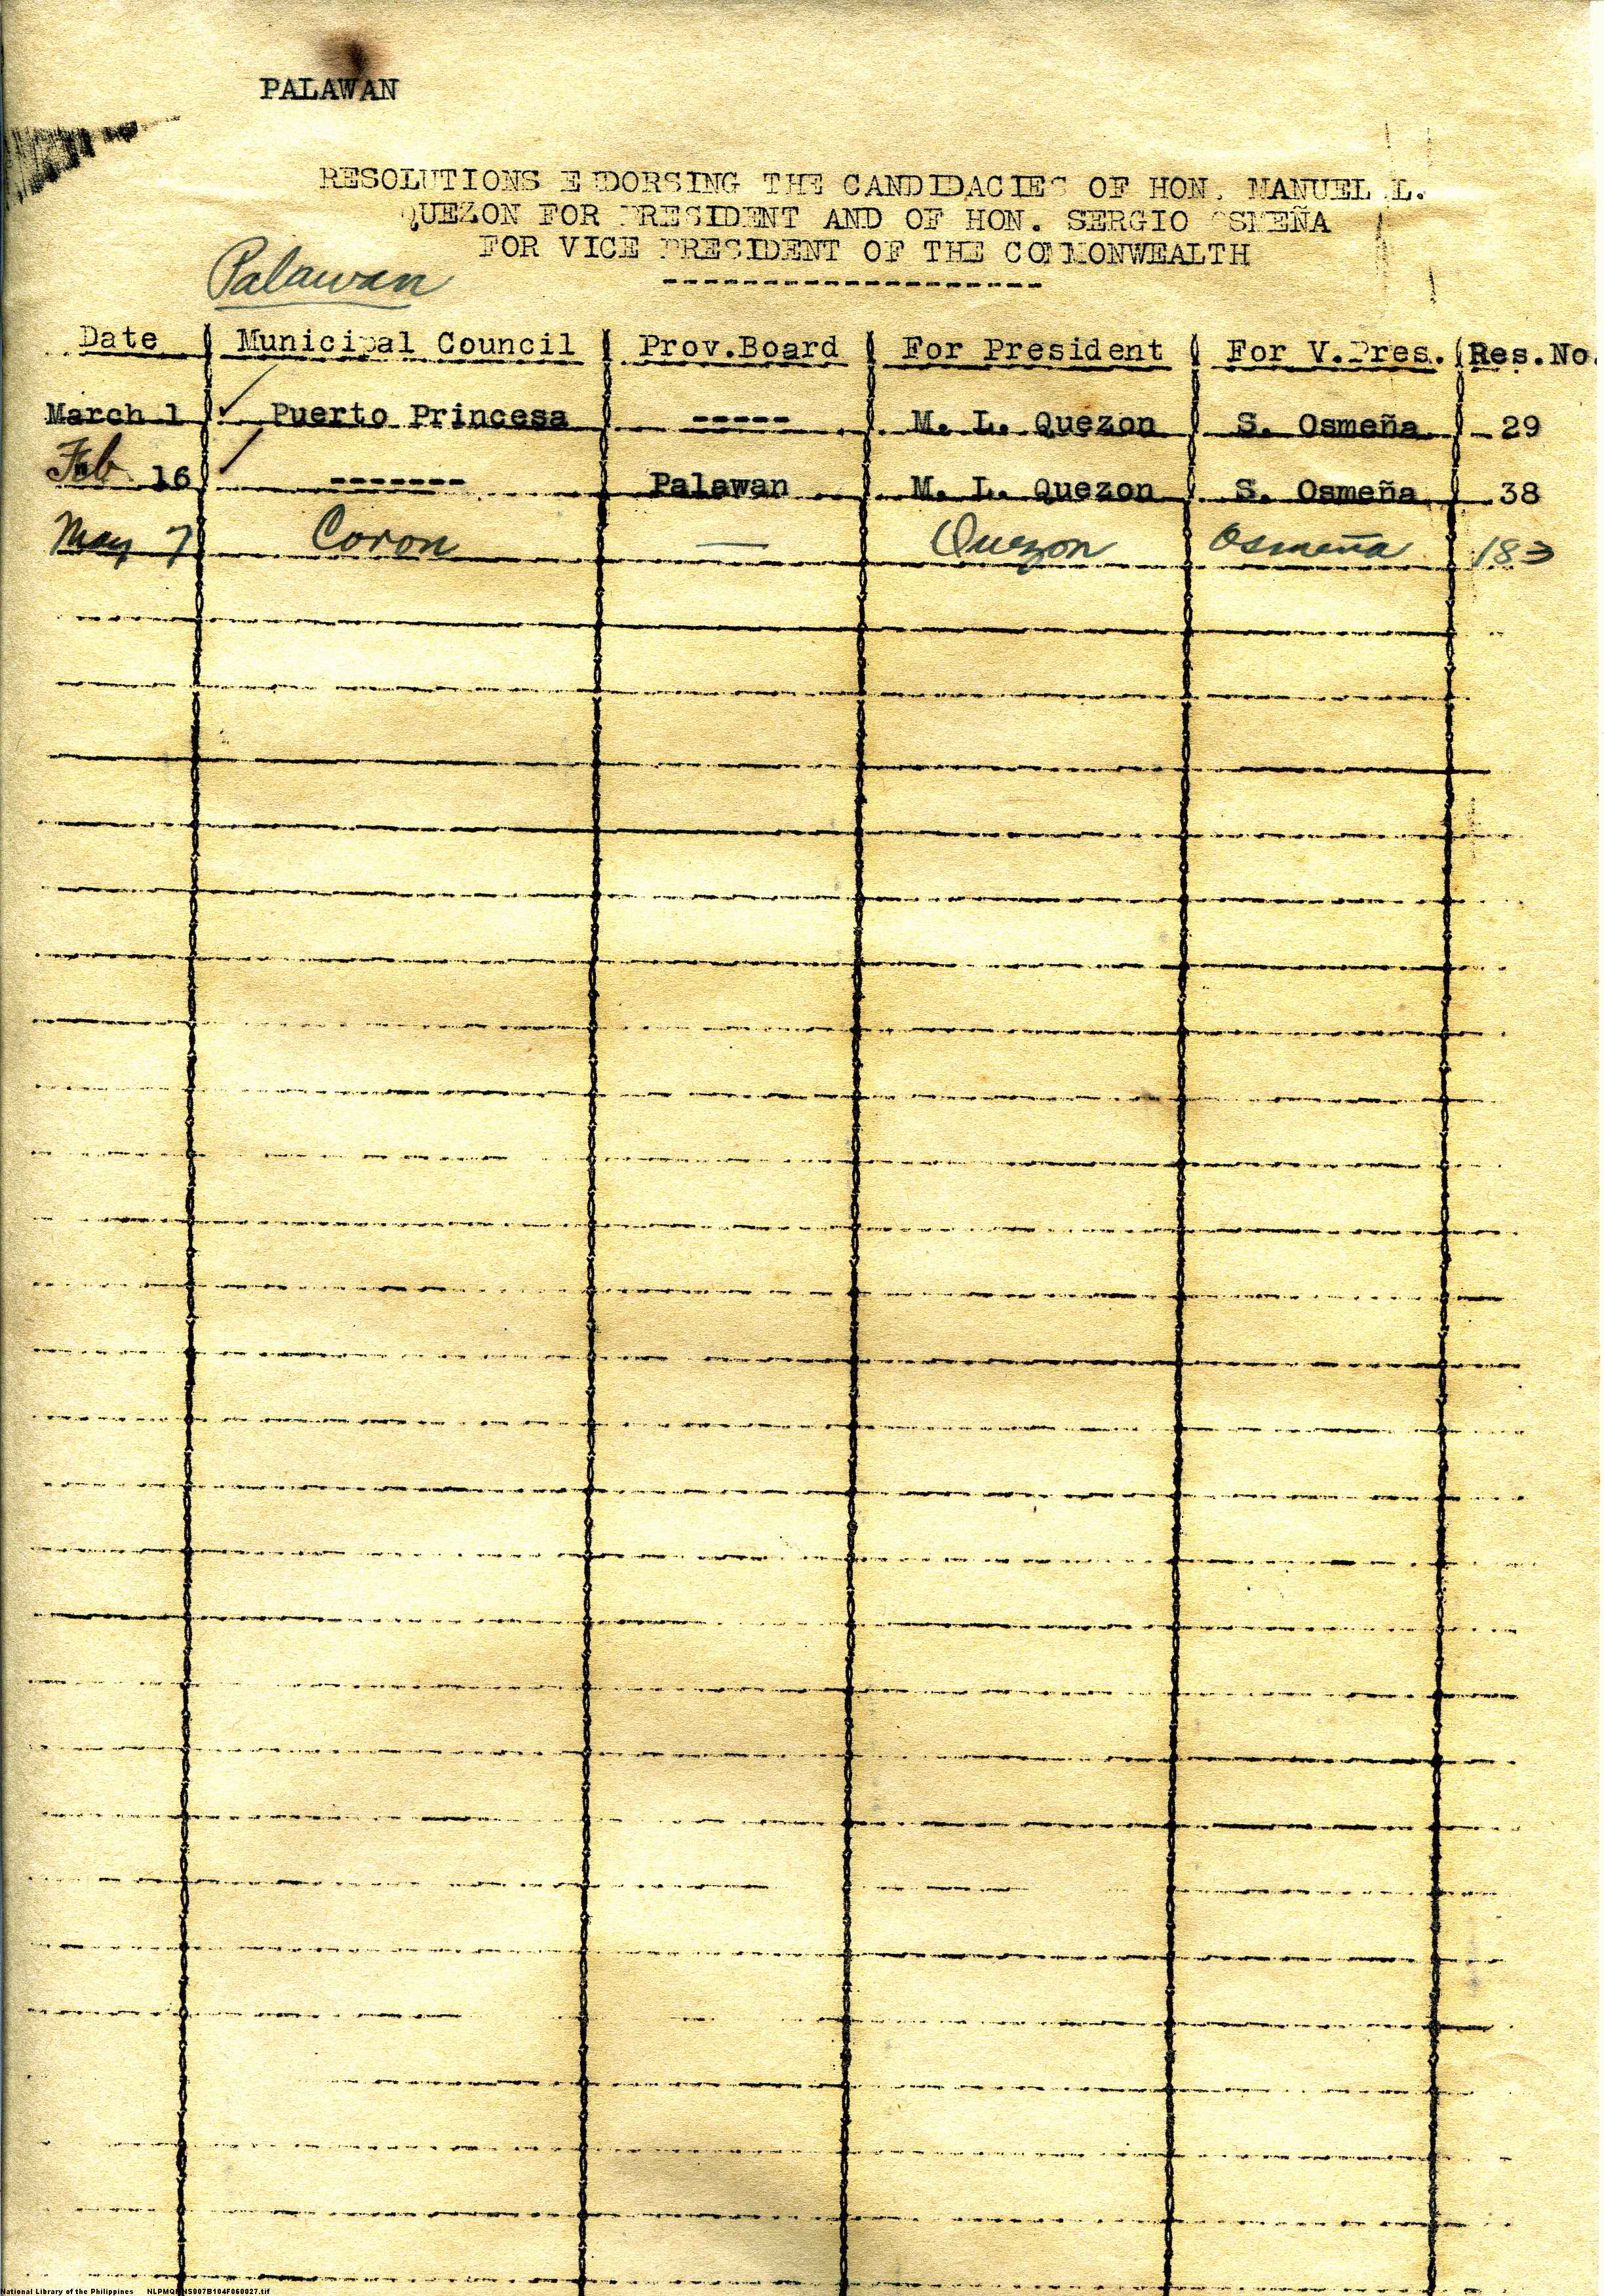 PALAWAN
RESOLUTIONS E DORSING THE CANDIDACIES OF HON. MANUEL L.
QUEZON FOR PRESIDENT AND OF HON. SERGIO OSMEÑA
FOR VICE PRESIDENT OF THE COMMONWEALTH
-------------------
Palawan
Date | Municipal Council | Prov.Board | For President | For V.Pres. | Res.No.
March 1 | Puerto Princesa | ----- | M. L. Quezon | S. Osmeña | 29
Feb 16 | ------- | Palawan | M. L. Quezon | S. Osmeña | 38
May 7 | Coron | — | Quezon | Osmeña | 183
National Library of the Philippines